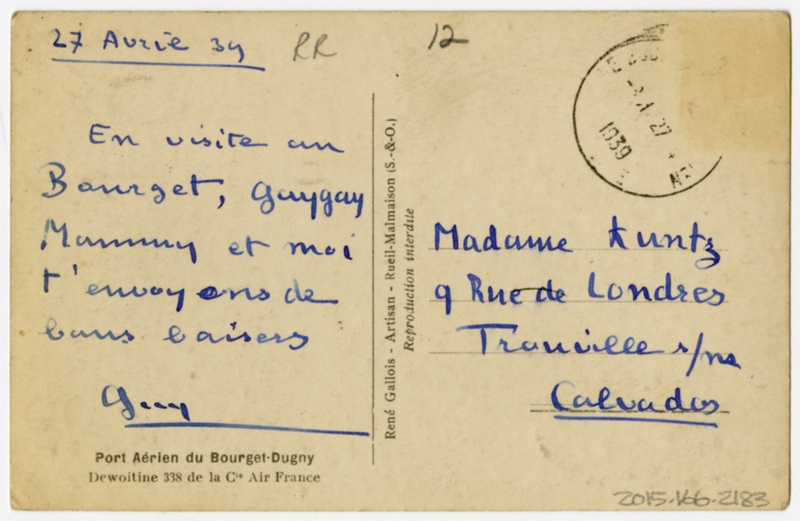 27 Avril 39
RR
12
27
1939
En visite au
Bourget, Guyguy
Mammy et moi
t'envoyons de
bons baisers
Guy
Port Aérien du Bourget-Dugny
Dewoitine 338 de la Cie Air France
René Gallois - Artisan - Rueil-Malmaison (S.-&-O.)
Reproduction interdite
Madame Kuntz
9 Rue de Londres
Trouville s/mer
Calvados
2015.166.2183